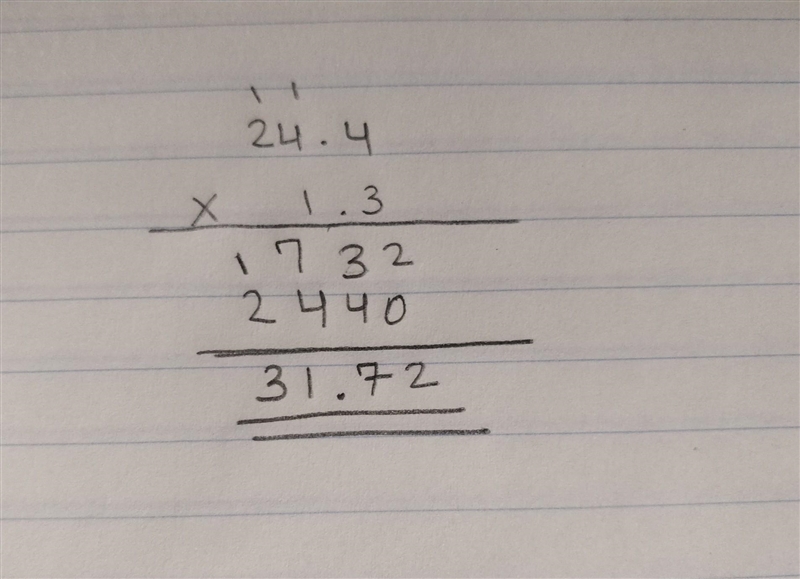 1 1
24.4
x 1.3
1732
2440
31.72